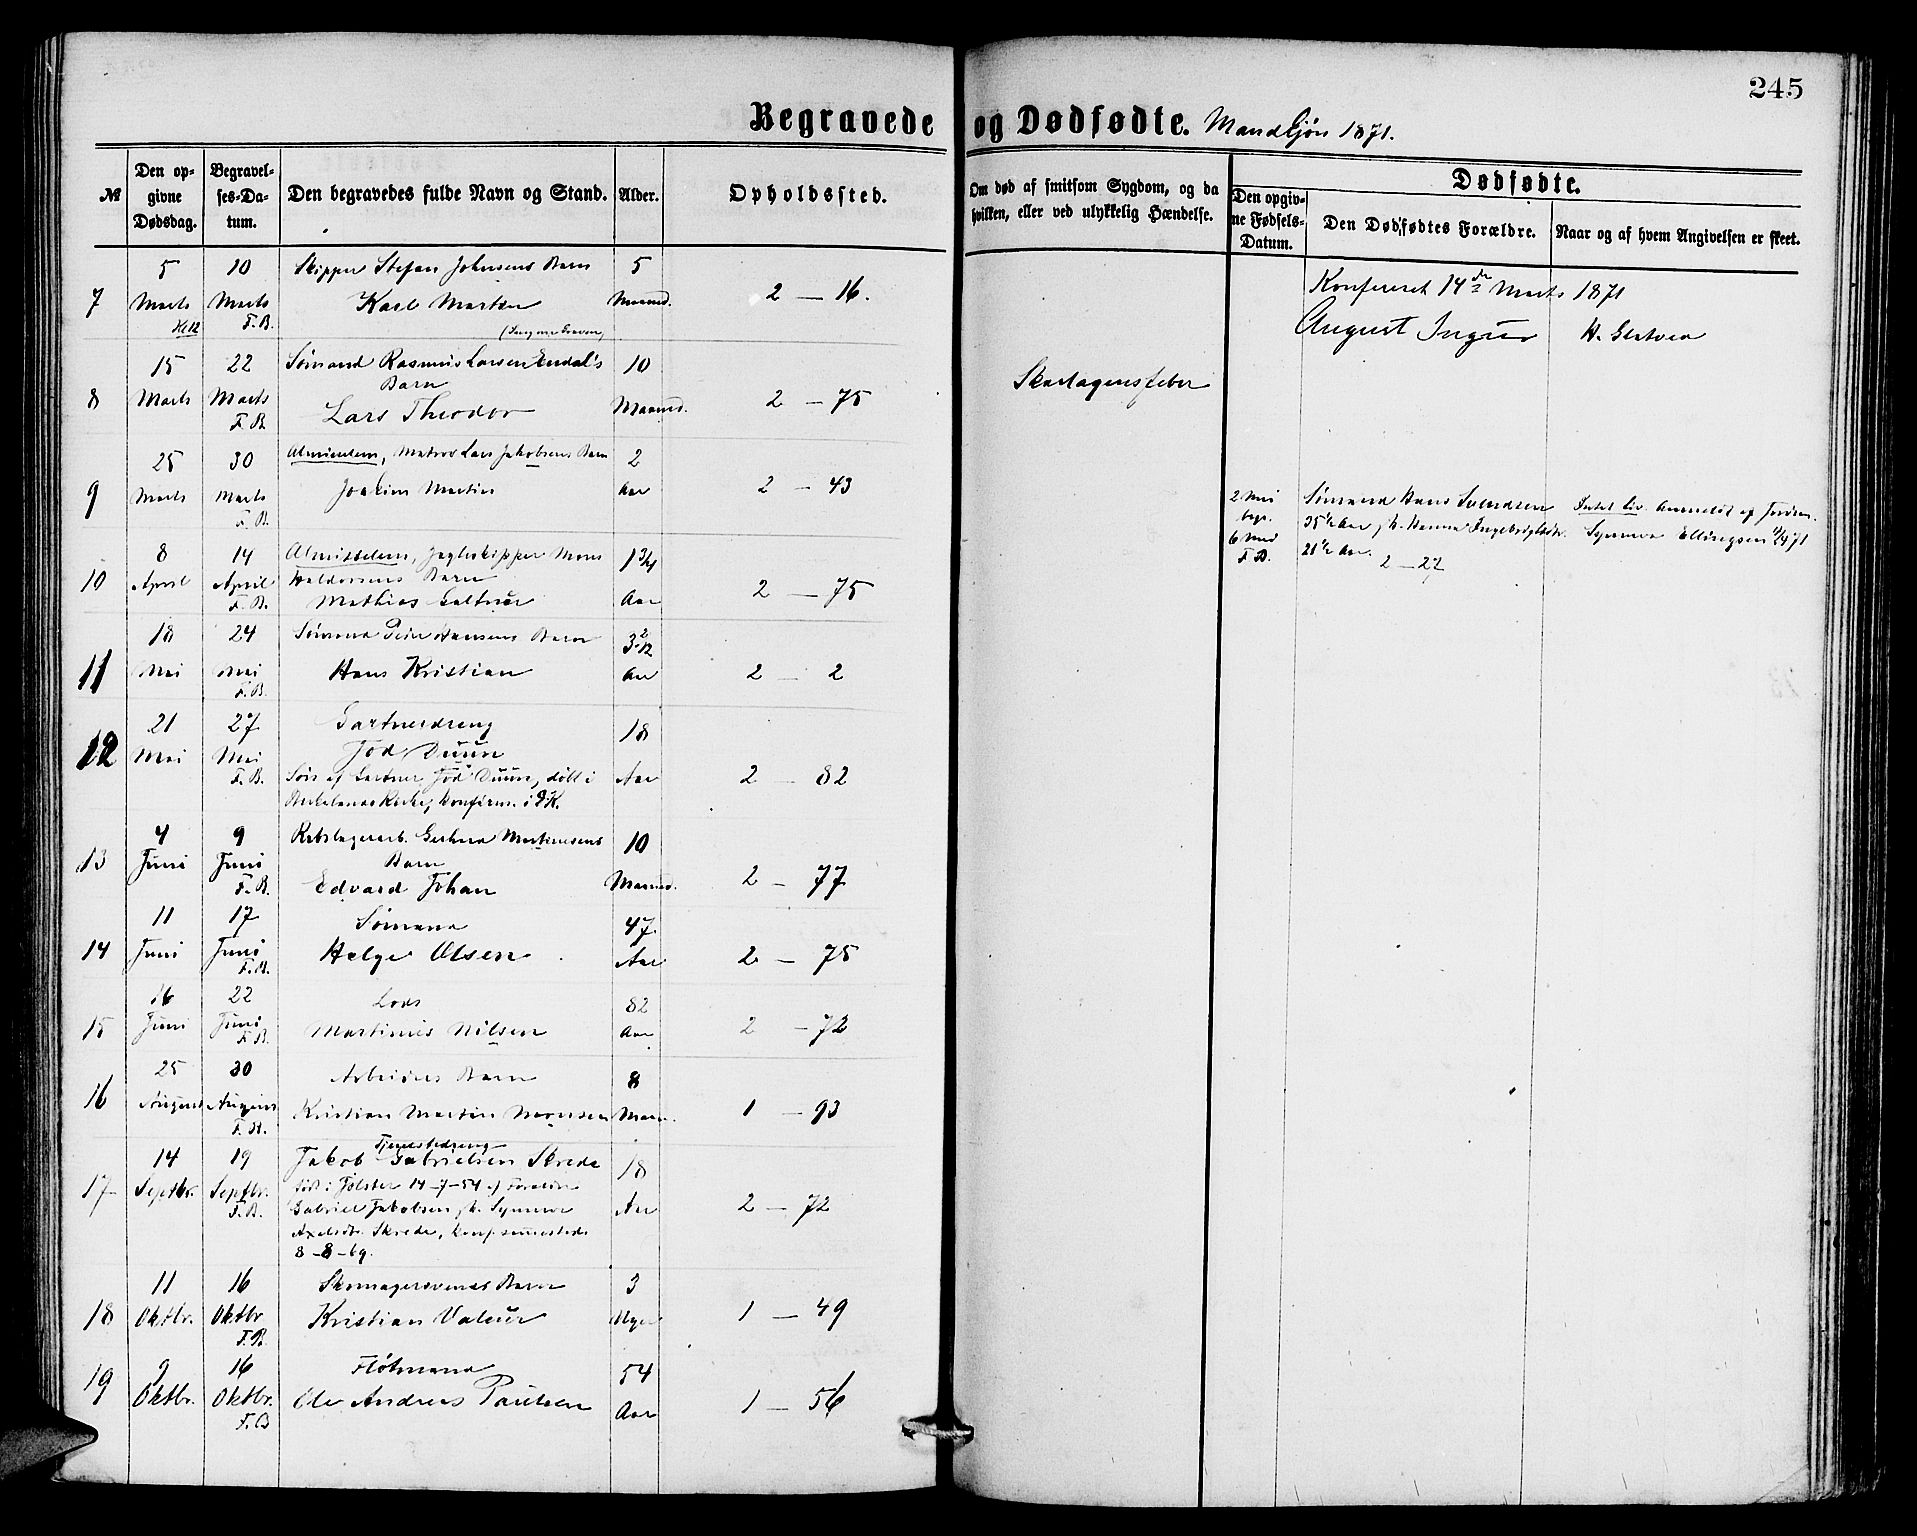 245
Begravede og Dødfødte. Mandkjøn 1871.
№
Den opgivne Dødsdag.
Begravelses-Datum.
Den begravedes fulde Navn og Stand.
Alder.
Opholdssted.
Om død af smitsom Sygdom, og da hvilken, eller ved ulykkelig Hændelse.
Dødfødte.
Den opgivne Fødsels-Datum.
Den Dødfødtes Forældre.
Naar og af hvem Angivelsen er skeet.
5 10 Skipper Stefan Johnsens Barn 5
7 Marts Marts Karl Martin Maaned. 2 – 16.
F.B.
Konfereret 14de Marts 1871
August
15 22 Sømand Rasmus Larsen Endal's 10
Barn
8 Marts Marts Lars Theodor Maaned. 2 – 75
F.B.
Skarlagensfeber
25 30 Matros Lars Jakobsens Barn 2
9 Marts Marts Joakim Martin Aar 2 – 43
F.B.
2 Mai
begr.
6 Mai
F.B.
Sømand Hans Svendsen
35½ Aar
21½ Aar.
2 – 27
Synneva Ellingsen
8 14 Mons 1¾
10 April April Haldorsens Barn
F.B. Mathias Aar 2 – 75
18 24 Sømand Hansens Barn 3 2/12
11 Mai Mai Hans Kristian Aar 2 – 2
F.B.
21 27 Gartnerdreng 18
12 Mai Mai Duun
F.B. Søn af Gartner Duun, døbt i Aar 2 – 82
Kirke, konfirm. i D.K.
4 9 Rebslagerarb. Martinusens 10
13 Juni Juni Barn
F.B. Edvard Johan Maaned. 2 – 77
11 17 Sømand 47
14 Juni Juni Helge Olsen Aar 2 – 75
F.B.
16 22 Lods 82
15 Juni Juni Martinus Nilsen Aar 2 – 72
F.B.
25 30 Arbeiders Barn 8
16 August August Kristian Martin Monsen Maan. 1 – 93
14 19 Tjenestedreng
Jakob Gabrielsen Skrede 18
17 Septbr. Septbr. født i Jølster 14–7–54 af Forældre
F.B. Gabriel Jakobsen h. Synneve Aar 2 – 72
Axelsdtr. Skrede, konf. sammesteds
8–8–69.
11 16 Skomagersvends Barn 3
18 Oktbr. Oktbr Kristian Valeur Uger 1 – 49
F.B.
9 16 Fløtmand 54
19 Oktbr. Oktbr. Ole Andreas Paulsen Aar 1 – 56
F.B